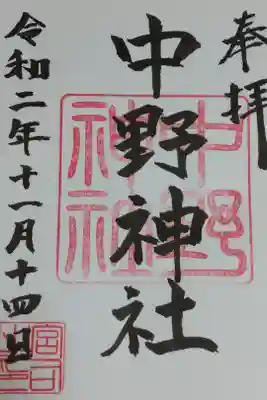 奉拝
中野神社
令和二年十一月十四日
中野
神社